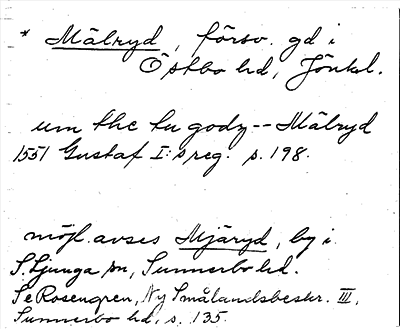 * Mälryd, försv. gd i
Östbo hd, Jönkl.
um the tu godz -- Mälryd
1551 Gustaf I:s reg. s. 198.
möjl. avses Mjäryd, by i
S. Ljunga sn, Sunnerbo hd.
Se Rosengren, Ny Smålandsbeskr. III,
Sunnerbo hd, s. 135.